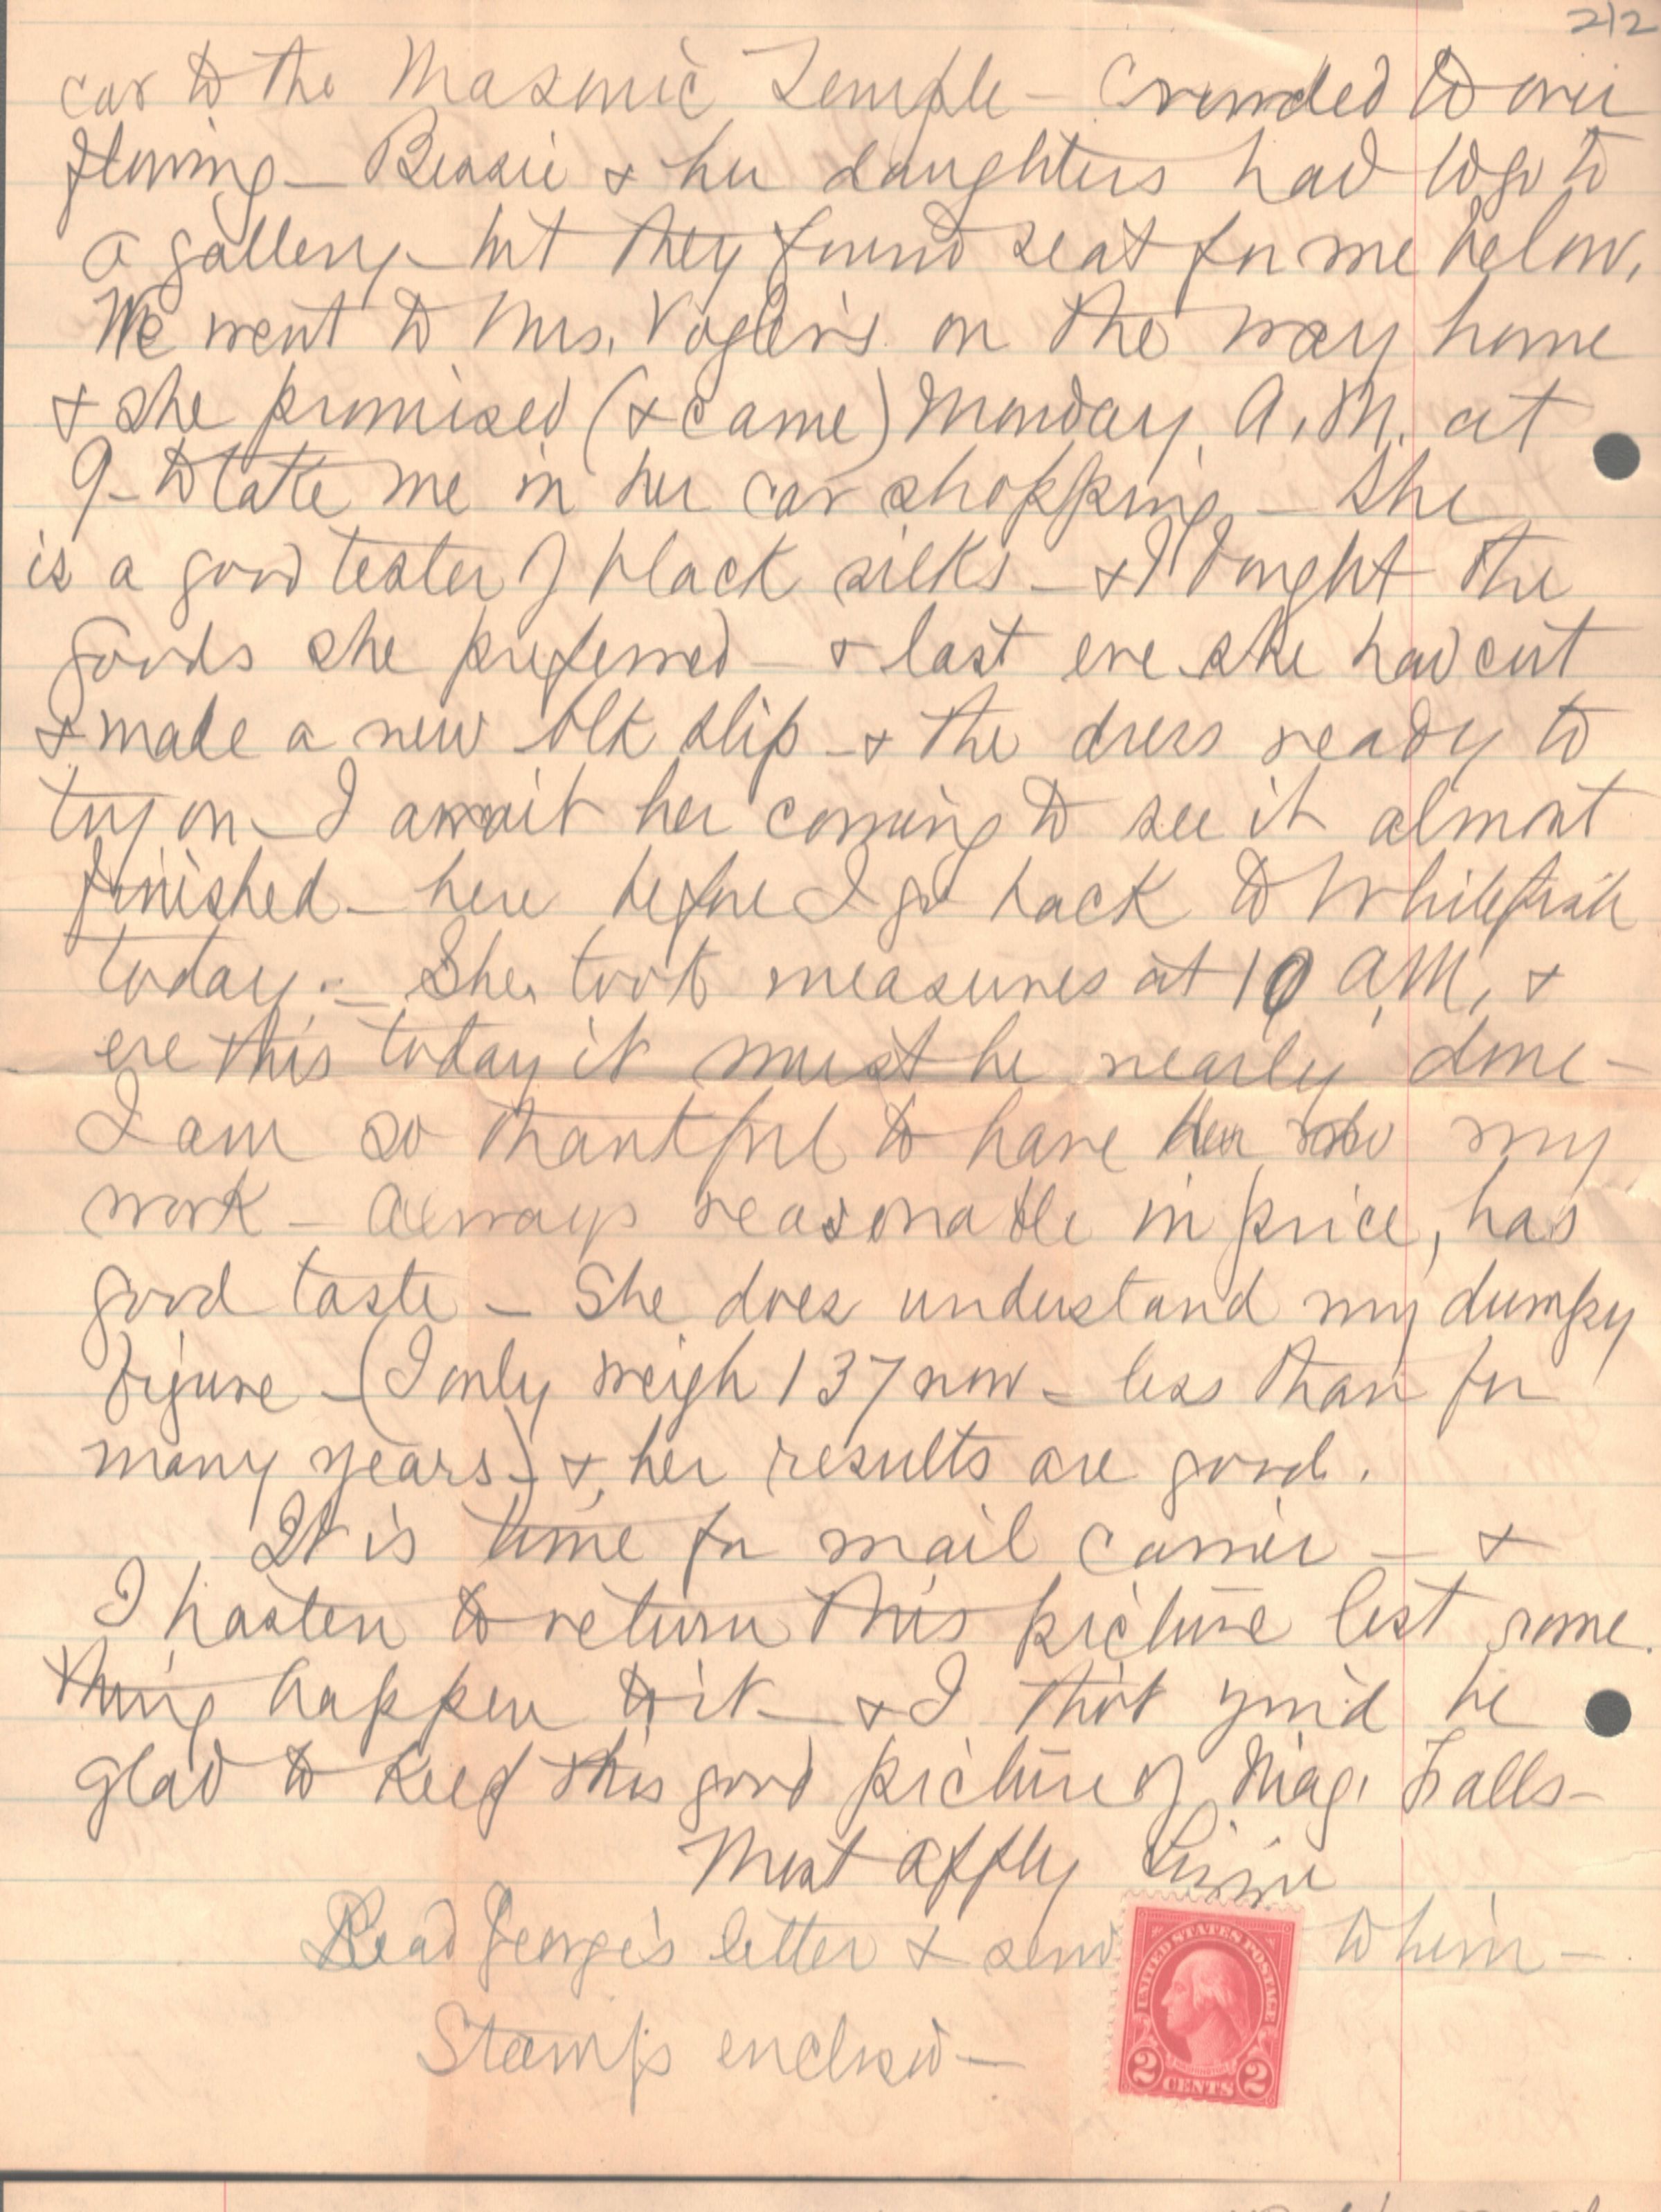 212
car to the Masonic Temple - Crowded to over
flowing - Bessie & her daughters had to go to
a gallery - but they found seat for me below.
We went to Mrs. Vogler's on the way home
& she promised (& came) Monday A.M. at
9 - to take me in her car shopping - She
is a good tester of black silks - & I bought the
goods she preferred - & last eve she had cut
& made a new blk slip - & the dress ready to
try on - I await her coming to see it almost
finished - here before I go back to Whitefish
today. - She took measures at 10 A.M. &
ere this today it must be nearly done -
I am so thankful to have her do my
work - Always reasonable in price, has
good taste - She does understand my dumpy
figure - (I only weigh 137 now - less than for
many years) & her results are good.
It is time for mail carrier - &
I hasten to return this picture lest some
thing happen to it - & I tho't you'd be
glad to keep this good picture of Niag. Falls -
Most affly Lizzie
Read George's letter & send to him -
Stamps enclosed -
UNITED STATES POSTAGE
2 CENTS 2